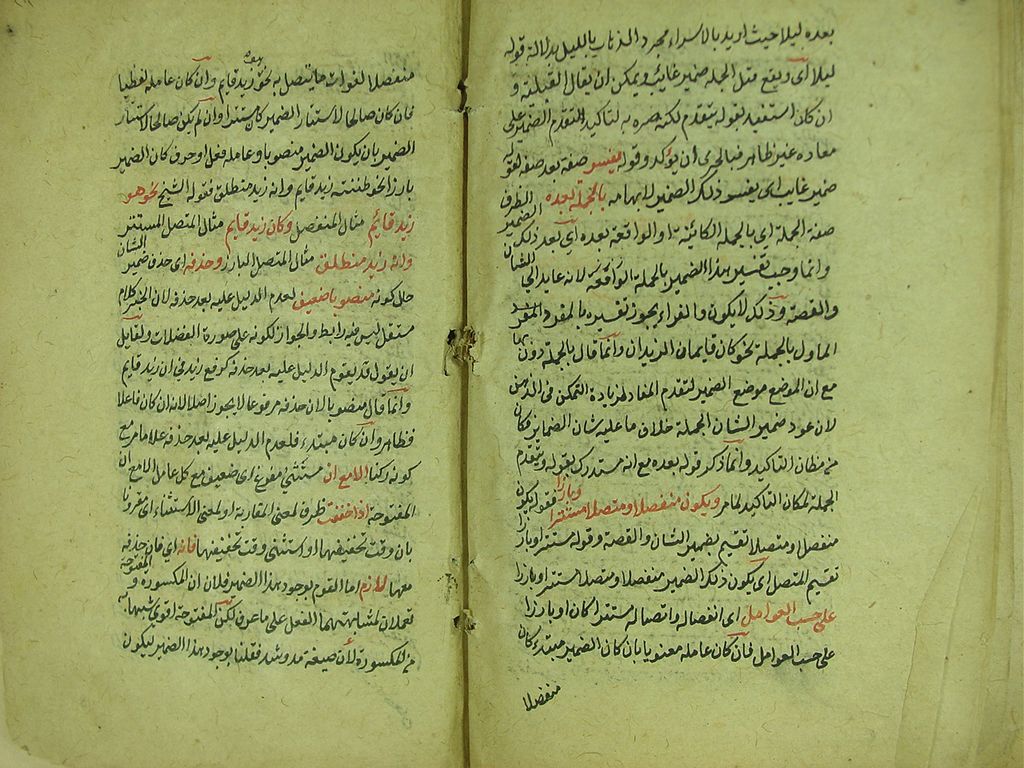 بعده ليلا حيث اريد بالاسراء مجرد الذهاب بالليل بدلالة قوله
ليلا اى ويقع قبل الجملة ضمير غايب ويمكن ان يقال القبلية و
ان كان استفيد بقوله يتقدم لكنه صرح به لتاكيد التقدم الضمير على
معاده غير ظاهر فبالحرى ان يؤكد وقوله يفسر صفة بعد صفة لقوله
ضمير غايب اى يفسر ذلك الضمير لابهامه بالجملة بعده الظرف
صفة الجملة اي بالجملة الكائنة او الواقعة بعده اى بعد ذلك الضمير
وانما وجب تفسير هذا الضمير بالجملة الواقعة لانه عايد الى الشان
والقصة وذلك لا يكون والفراء يجوز تفسيره بالمفرد
الماول بالجملة نحو كان قايما الزيدان وانما قال بالجملة دون بها
مع ان الموضع موضع الضمير لتقدم المعاد لزيادة التمكن فى الذهن
لان عود ضمير الشان الجملة خلاف ما عليه شان الضماير فكان
من مظان التاكيد وانما ذكر قوله بعده مع انه مستدرك بقوله ويتقدم
الجملة لمكان التاكيد لما مر ويكون منفصلا او متصلا مستترا وبارزا فقوله يكون
منفصلا او متصلا تقسيم لضمير الشان والقصة وقوله مستترا وبارزا
تقسيم المتصل اى يكون ذلك الضمير منفصلا او متصلا مستترا وبارزا
على حسب العوامل اى انفصاله واتصاله مستترا كان او بارزا
على حسب العوامل فان كان عامله معنويا بان كان الضمير مبتدء كان
منفصلا
منفصلا لفوات ما يتصل به نحو زيد قايم وان كان عامله لفظيا
فان كان صالحا لاستتار الضمير كان مستترا وان لم يكن صالحا لاستتار
الضمير بان يكون الضمير منصوبا وعامله فعل او حرف كان الضمير
بارزا نحو ظننته زيد قايم وانه زيد منطلق فقوله الشيخ نحو هو
زيد قائم مثال المنفصل وكان زيد قايم مثال المتصل المستتر
وانه زيد منطلق مثال المتصل البارز وحذفه اى حذف ضمير الشان
حال كونه منصوبا ضعيف لعدم الدليل عليه بعد حذفه لان الخبر كلام
مستقل ليس فيه رابط والجواز لكونه على صورة الفضلات ولقايل
ان يقول قد يقوم الدليل عليه بعد حذفه كرفع زيد فى ان زيد قايم
وانما قال منصوبا لان حذفه مرفوعا لا يجوز اصلا لانه ان كان فاعلا
فظاهر وان كان مبتدء فلعدم الدليل عليه بعد حذفه على ما مر مع
كونه ركنا الا مع ان مستثنى مفرغ اى ضعيف مع كل عامل الا مع ان
المفتوحة اذا خففت ظرف لمعنى المقارنة او لمعنى الاستثناء اى مقرونا
بان وقت تخفيفها او استثنى وقت تخفيفها فانه اي فان حذفه
معها لازم اما القوم بوجود هذا الضمير فلان ان المكسورة و المفتوحة
تعملان لمشابهتهما الفعل على ما عرف لكن المفتوحة اقوى شبها به
من المكسورة لان صيغة مد وشد فقلنا بوجود هذا الضمير ليكون